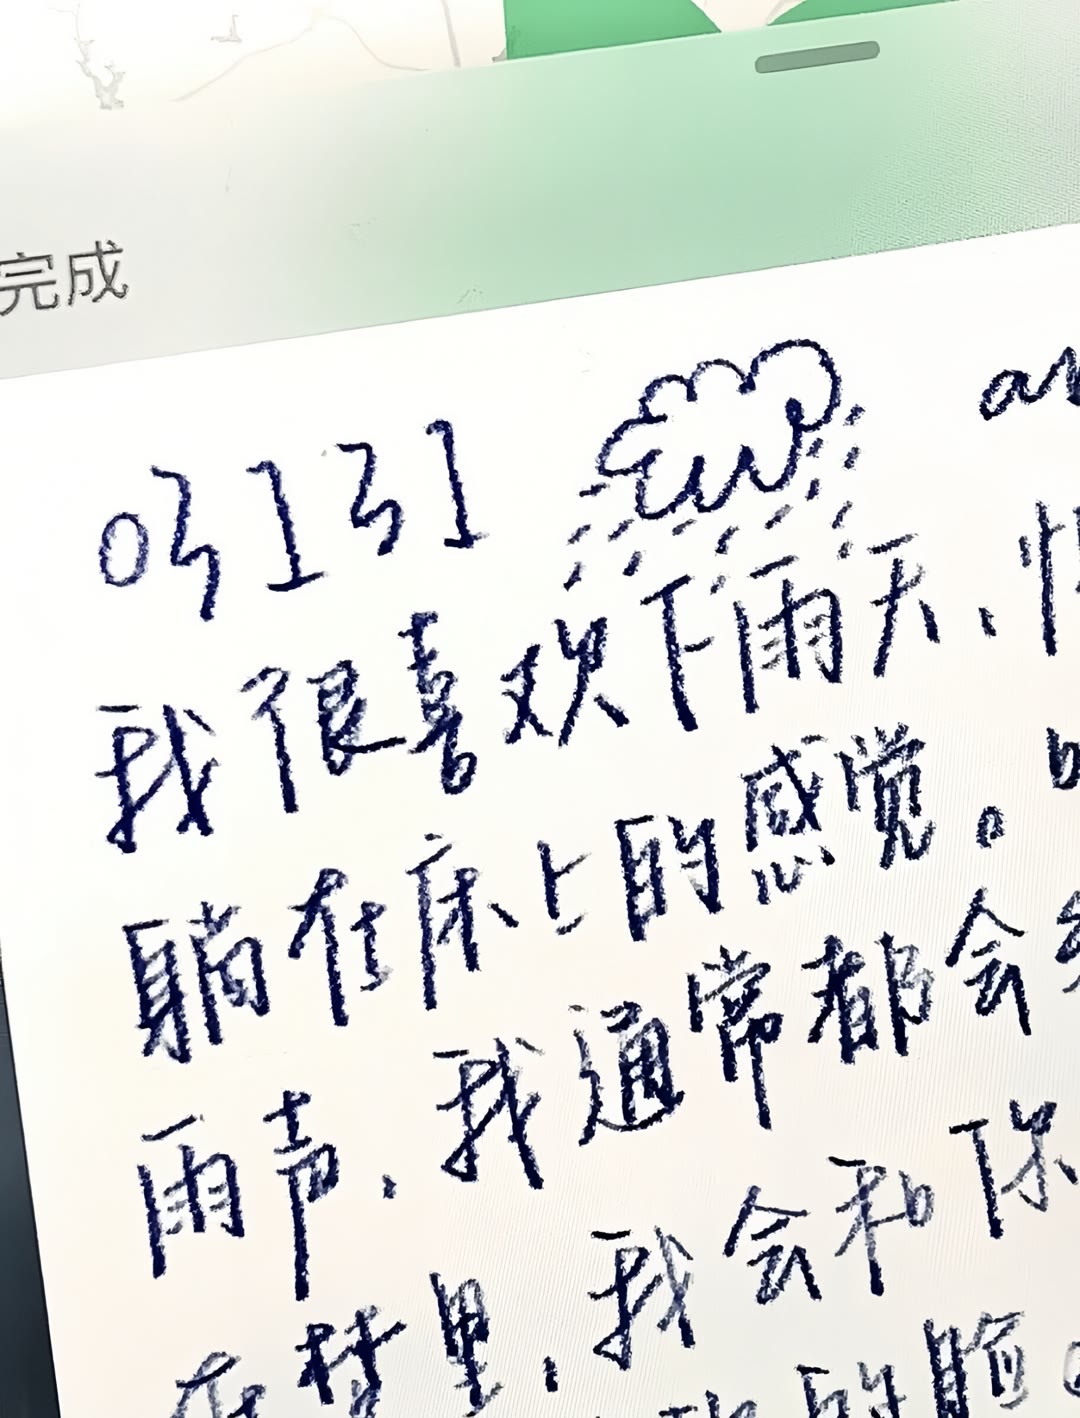 完成
叮叮
我很喜欢下雨天、
躺在床上的感觉。
雨声、我通常都会
在梦里、我会和你
的脸